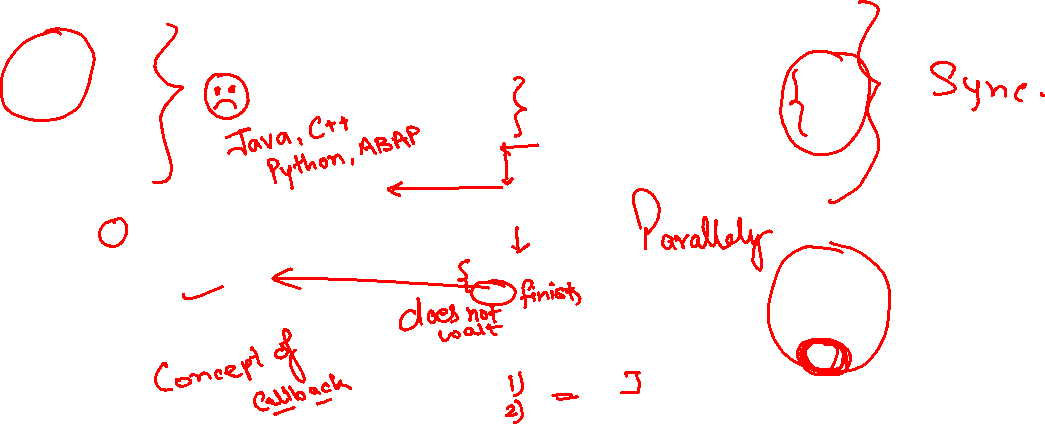 Sync.
Java, C++
Python, ABAP
Parallely
finish
does not
wait
Concept of
Callback
1)
2)